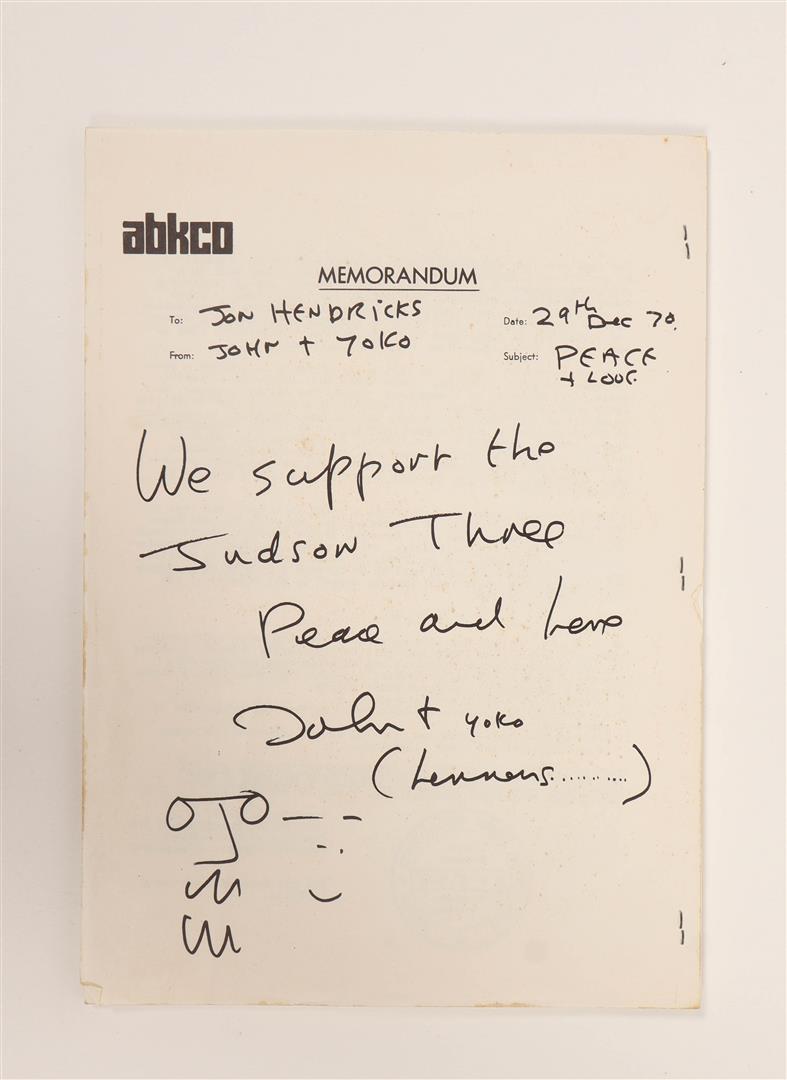 abkco
MEMORANDUM
To: JON HENDRICKS
From: JOHN + YOKO
Date: 29th Dec 70.
Subject: PEACE
+ LOVE.
We support the
Judson Three
Peace and Love
John + yoko
(Lennons..........)